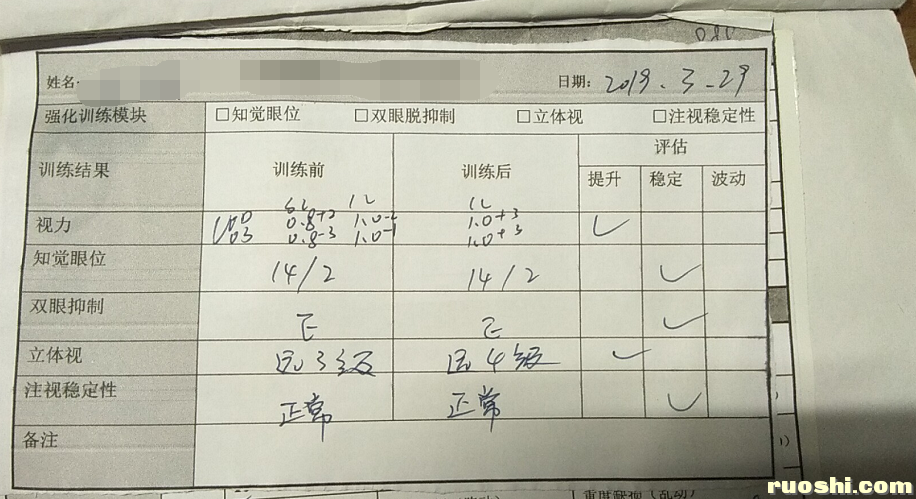 080
姓名: 日期: 2019.3.29
强化训练模块 □知觉眼位 □双眼脱抑制 □立体视 □注视稳定性
训练结果 训练前 训练后 评估
提升 稳定 波动
SL 1L 1L
视力 VOD 0.8+2 1.0-2 1.0+3 ✓
VOS 0.8-3 1.0-1 1.0+3
知觉眼位 14/2 14/2 ✓
双眼抑制 ✓
立体视 远3级 远4级 ✓
注视稳定性 正常 正常 ✓
备注
ruoshi.com